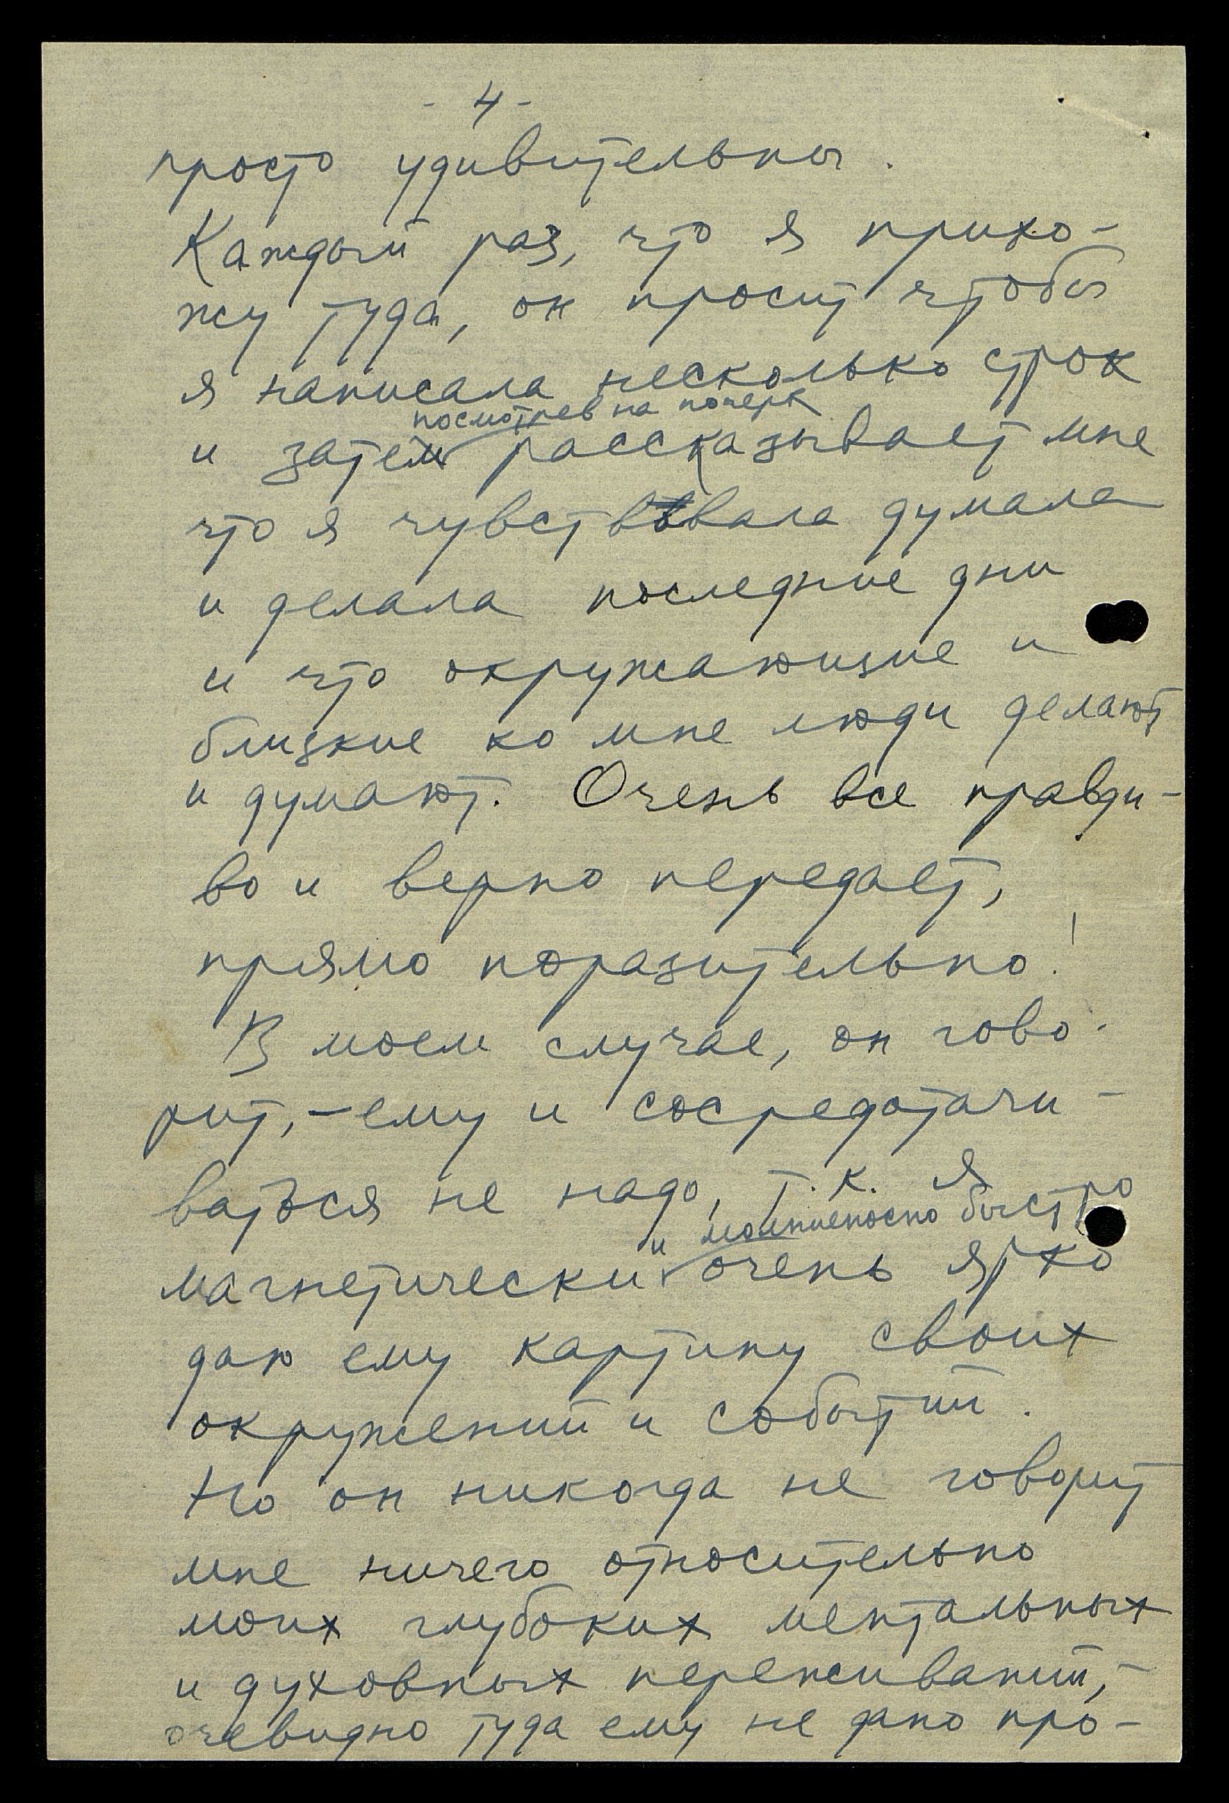 - 4 -
просто удивительны.
Каждый раз, что я прихо-
жу туда, он просит чтобы
я написала несколько строк
посмотрев на почерк
и затем рассказывает мне
что я чувствовала думала
и делала последние дни
и что окружающие и
близкие ко мне люди делают
и думают. Очень все правди-
во и верно передает,
прямо поразительно!
В моем случае, он гово-
рит, - ему и сосредотачи-
ваться не надо, т. к. я
и молниеносно быстро
магнетически очень ярко
даю ему картину своих
окружений и событий.
Но он никогда не говорит
мне ничего относительно
моих глубоких ментальных
и духовных переживаний, -
очевидно туда ему не дано про-